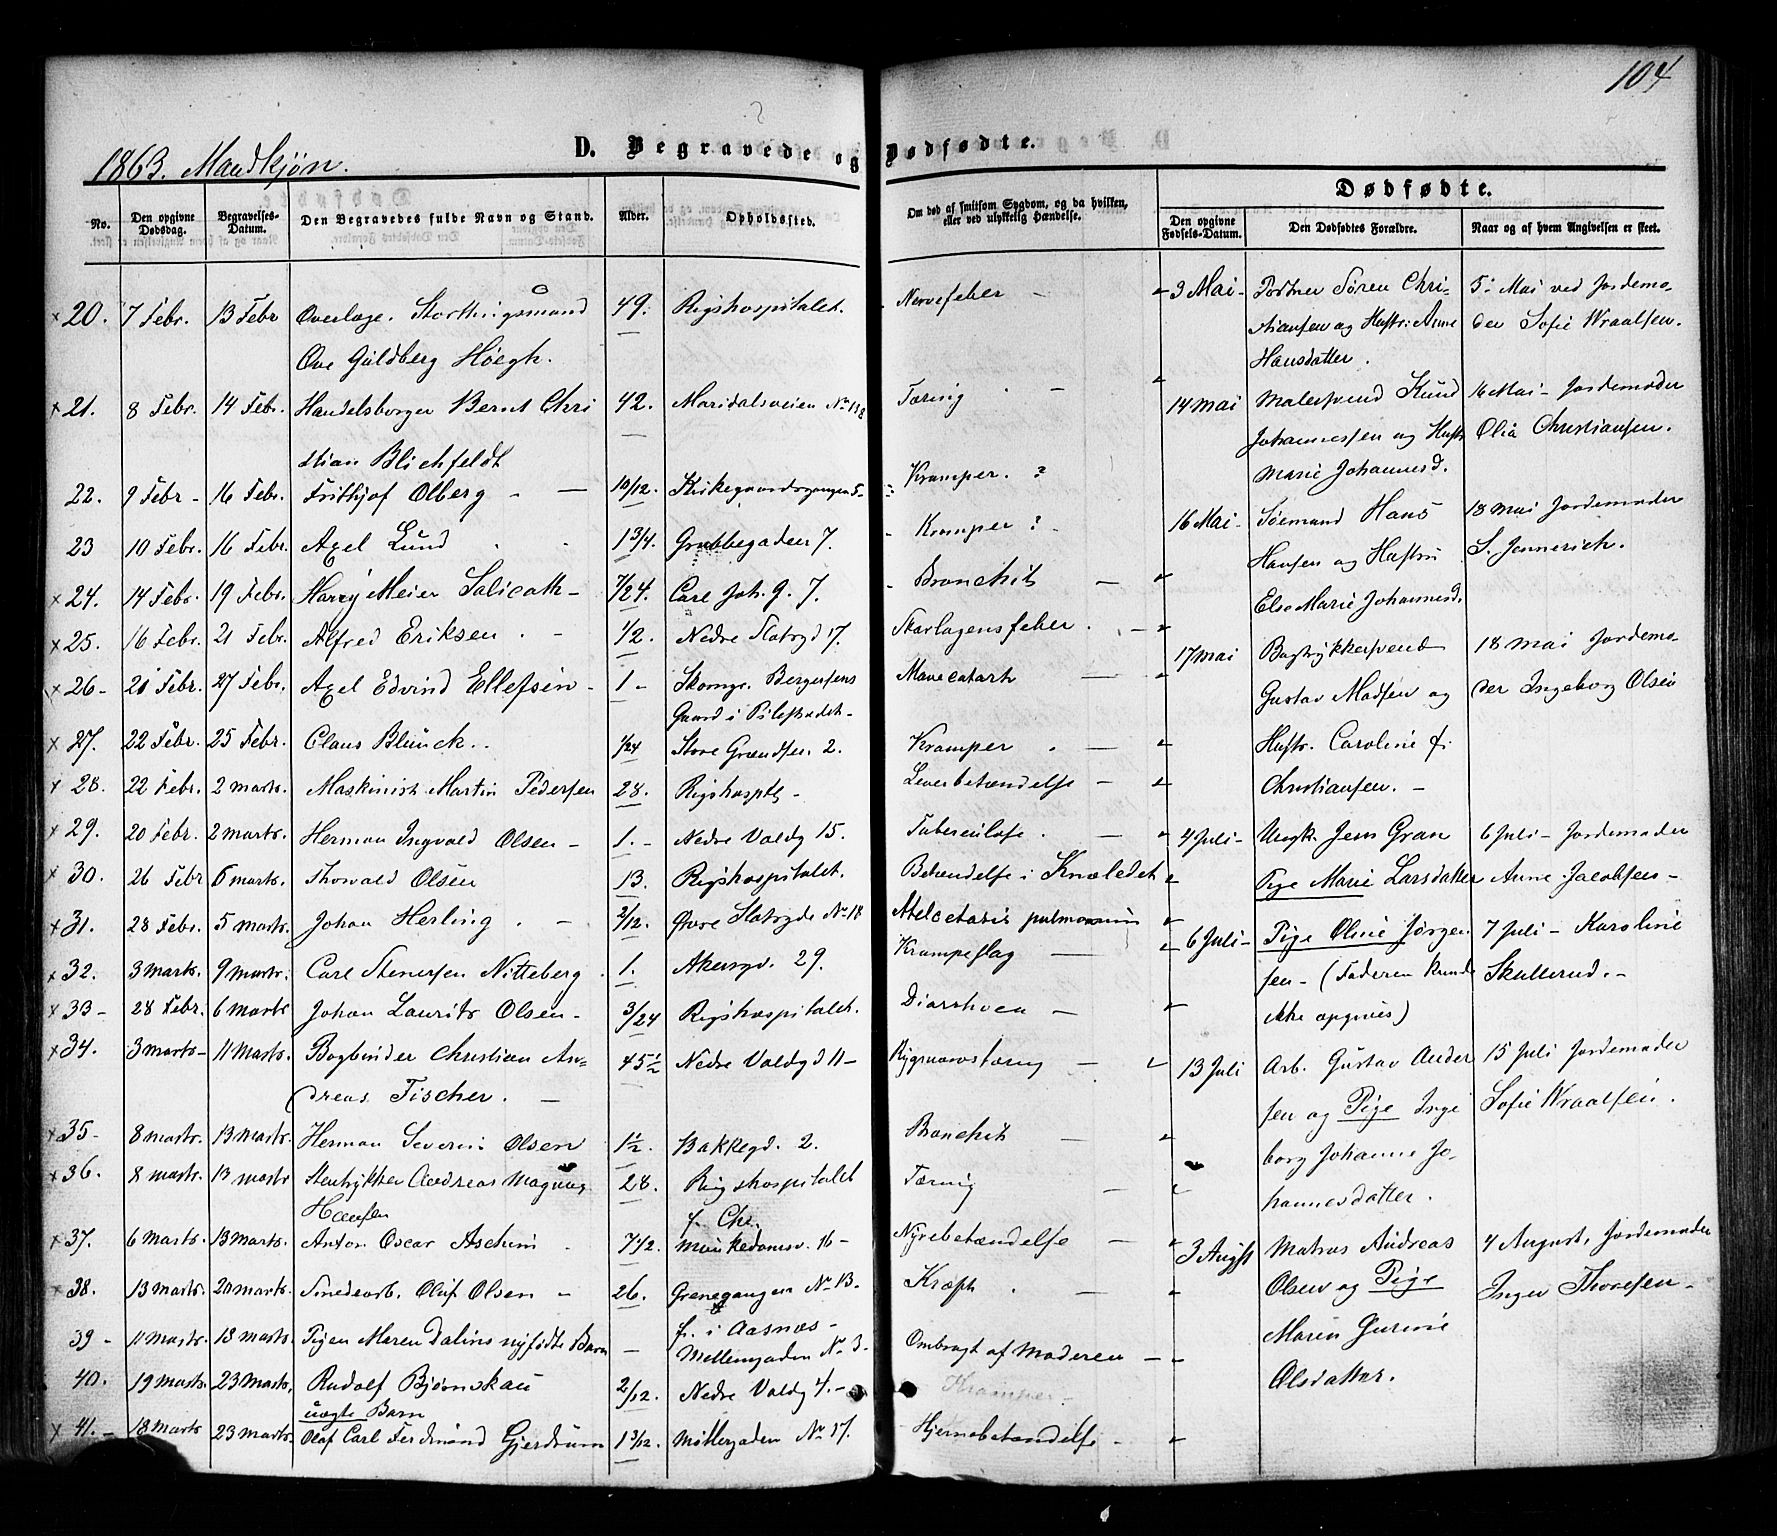 104
1863. Mandkjøn.
D. Begravede og Dødfødte.
No.
Den opgivne Dødsdag.
Begravelses-Datum.
Den Begravedes fulde Navn og Stand.
Alder.
Opholdssted.
Om død af smitsom Sygdom, og da hvilken, eller ved ulykkelig Hændelse.
Dødfødte.
Den opgivne Fødsels-Datum.
Den Dødfødtes Forældre.
Naar og af hvem Angivelsen er skeet.
20. 7 Febr. 13 Febr Overlæge. Storthingsmand 49. Rigshospitalet. Nervefeber
Ove Guldberg Høegh.
21. 8 Febr. 14 Febr. Handelsborger Bernt Chri 42. Maridalsveien No 118 Tæring
stian Blichfeldt
22. 9 Febr 16 Febr. Frithjof Olberg 10/12. Kirkegaardsgangen 5 Kramper. ?
23 10 Febr. 16 Febr. Axel Lund 1 3/4. Grubbegaden 7. Kramper ?
24. 14 Febr. 19 Febr. Harry Meier Salicath 7/24. Carl Joh. g. 7. Bronchit
25. 16 Febr. 21 Febr. Alfred Eriksen 1/2. Nedre Slotsgd 17. Skarlagensfeber
26 21 Febr. 27 Febr. Axel Edvind Ellefsen 1 Skomg. Bergersens Mavecatarh
Gaard i Pilestrædet
27. 22 Febr. 25 Febr. Claus Blunck. 1/24 Store Grændsen 2. Kramper
28. 22 Febr. 2 marts. Maskinist Martin Pedersen 28. Rigshosptl Leverbetændelse
29. 20 Febr. 2 marts. Herman Ingvald Olsen 1. Nedre Voldg 15. Tuberculose
30. 26 Febr 6 marts. Thorvald Olsen 13. Rigshospitalet. Betændelse i Knæledet
31. 28 Febr. 5 marts. Johan Herling 2/12. Øvre Slotsgde No 18 Atelectasis pulmonum
32. 3 marts. 9 marts. Carl Stenersen Nitteberg 1. Akersgd. 29. Krampeslag
33 28 Febr. 6 marts Johan Laurits Olsen 3/24 Rigshospitalet. Diarrhoea
34. 3 marts 11 marts. Bogbinder Christian An- 45 1/2 Nedre Voldg d 11 Rygmarvstæring
dreas Fischer.
35 8 marts. 13 marts. Herman Severin Olsen 1 1/2 Bakkegd. 2. Bronchit
36. 8 marts. 13 marts Stentrykker Andreas Magnus 28. Rigshospitalet Tæring
Hansen
37. 6 marts. 13 marts. Anton Oscar Aschim 7/12. f. Chr.
Munkedamsv. 16 Nyrebetændelse
38. 13 marts. 20 marts. Smedearb. Oluf Olsen 26. Grønnegangen No 13. Kræft
39 11 marts. 18 marts. Pigen Maren Dalins nyfødte Barn f. i Aasnæs
Møllergaden No 3. Ombragt af Moderen
40. 19 marts. 23 marts. Rudolf Bjørnskau 2/12. Nedre Voldg 4. Kramper
uægte Barn
41. 18 marts 23 marts. Olaf Carl Ferdinand Gjerdrum 1 3/12. Møllergaden No 17. Hjernebetændelse
3 Mai Portner Søren Chri- 5: Mai ved Jordemo-
stiansen og Hustr: Anne der Sofie Wraalsen.
Hansdatter.
14 mai Malersvend Knud 16 Mai Jordemoder
Johannessen og Hustr Olia Christiansen.
Marie Johannesd.
16 Mai Sømand Hans 18 mai Jordemoder
Hansen og Hustru S. Jennerich.
Else Marie Johannesd.
17 mai Bogtrykkersvend 18 mai Jordemo-
Gustav Madsen og der Ingeborg Olsen
Hustr. Caroline f.
Christiansen.
4 Juli Ungk. Jens Gran 6 Juli Jordemoder
Pige Marie Larsdatter Anne Jacobsen
6 Juli Pige Oline Jørgen 7 Juli Karoline
sen (Faderen kunde Skullerud.
ikke opgives)
13 Juli Arb. Gustav Ander 15 Juli Jordemoder
sen og Pige Inge Sofie Wraalsen.
borg Johanne Jo-
hannesdatter.
3 Augst Matros Andreas 4 August, Jordemoder
Olsen og Pige Inger Thoresen
Maren Gurine
Olsdatter.